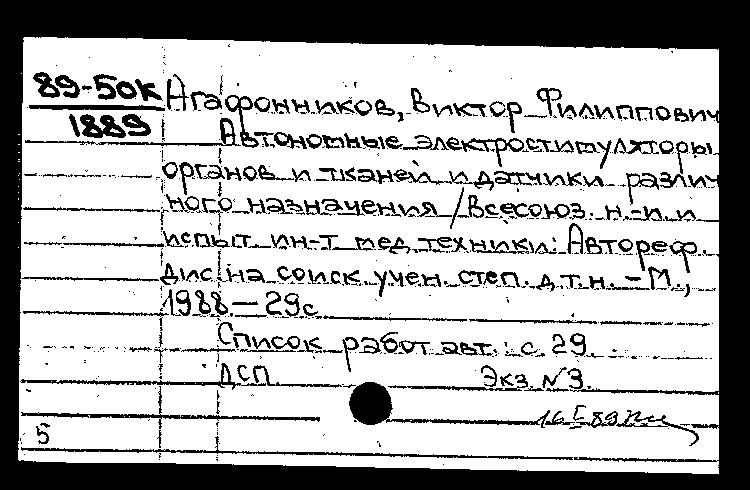 89-50к
1889
Агафонников, Виктор Филиппович
Автономные электростимуляторы
органов и тканей и датчики различ
ного назначения / Всесоюз. н.-и. и
испыт. ин-т мед. техники: Автореф.
дис. на соиск. учен. степ. д.т.н. - М.,
1988 — 29с
Список работ авт.: с. 29.
ДСП. Экз. №3.
16 I 89
5